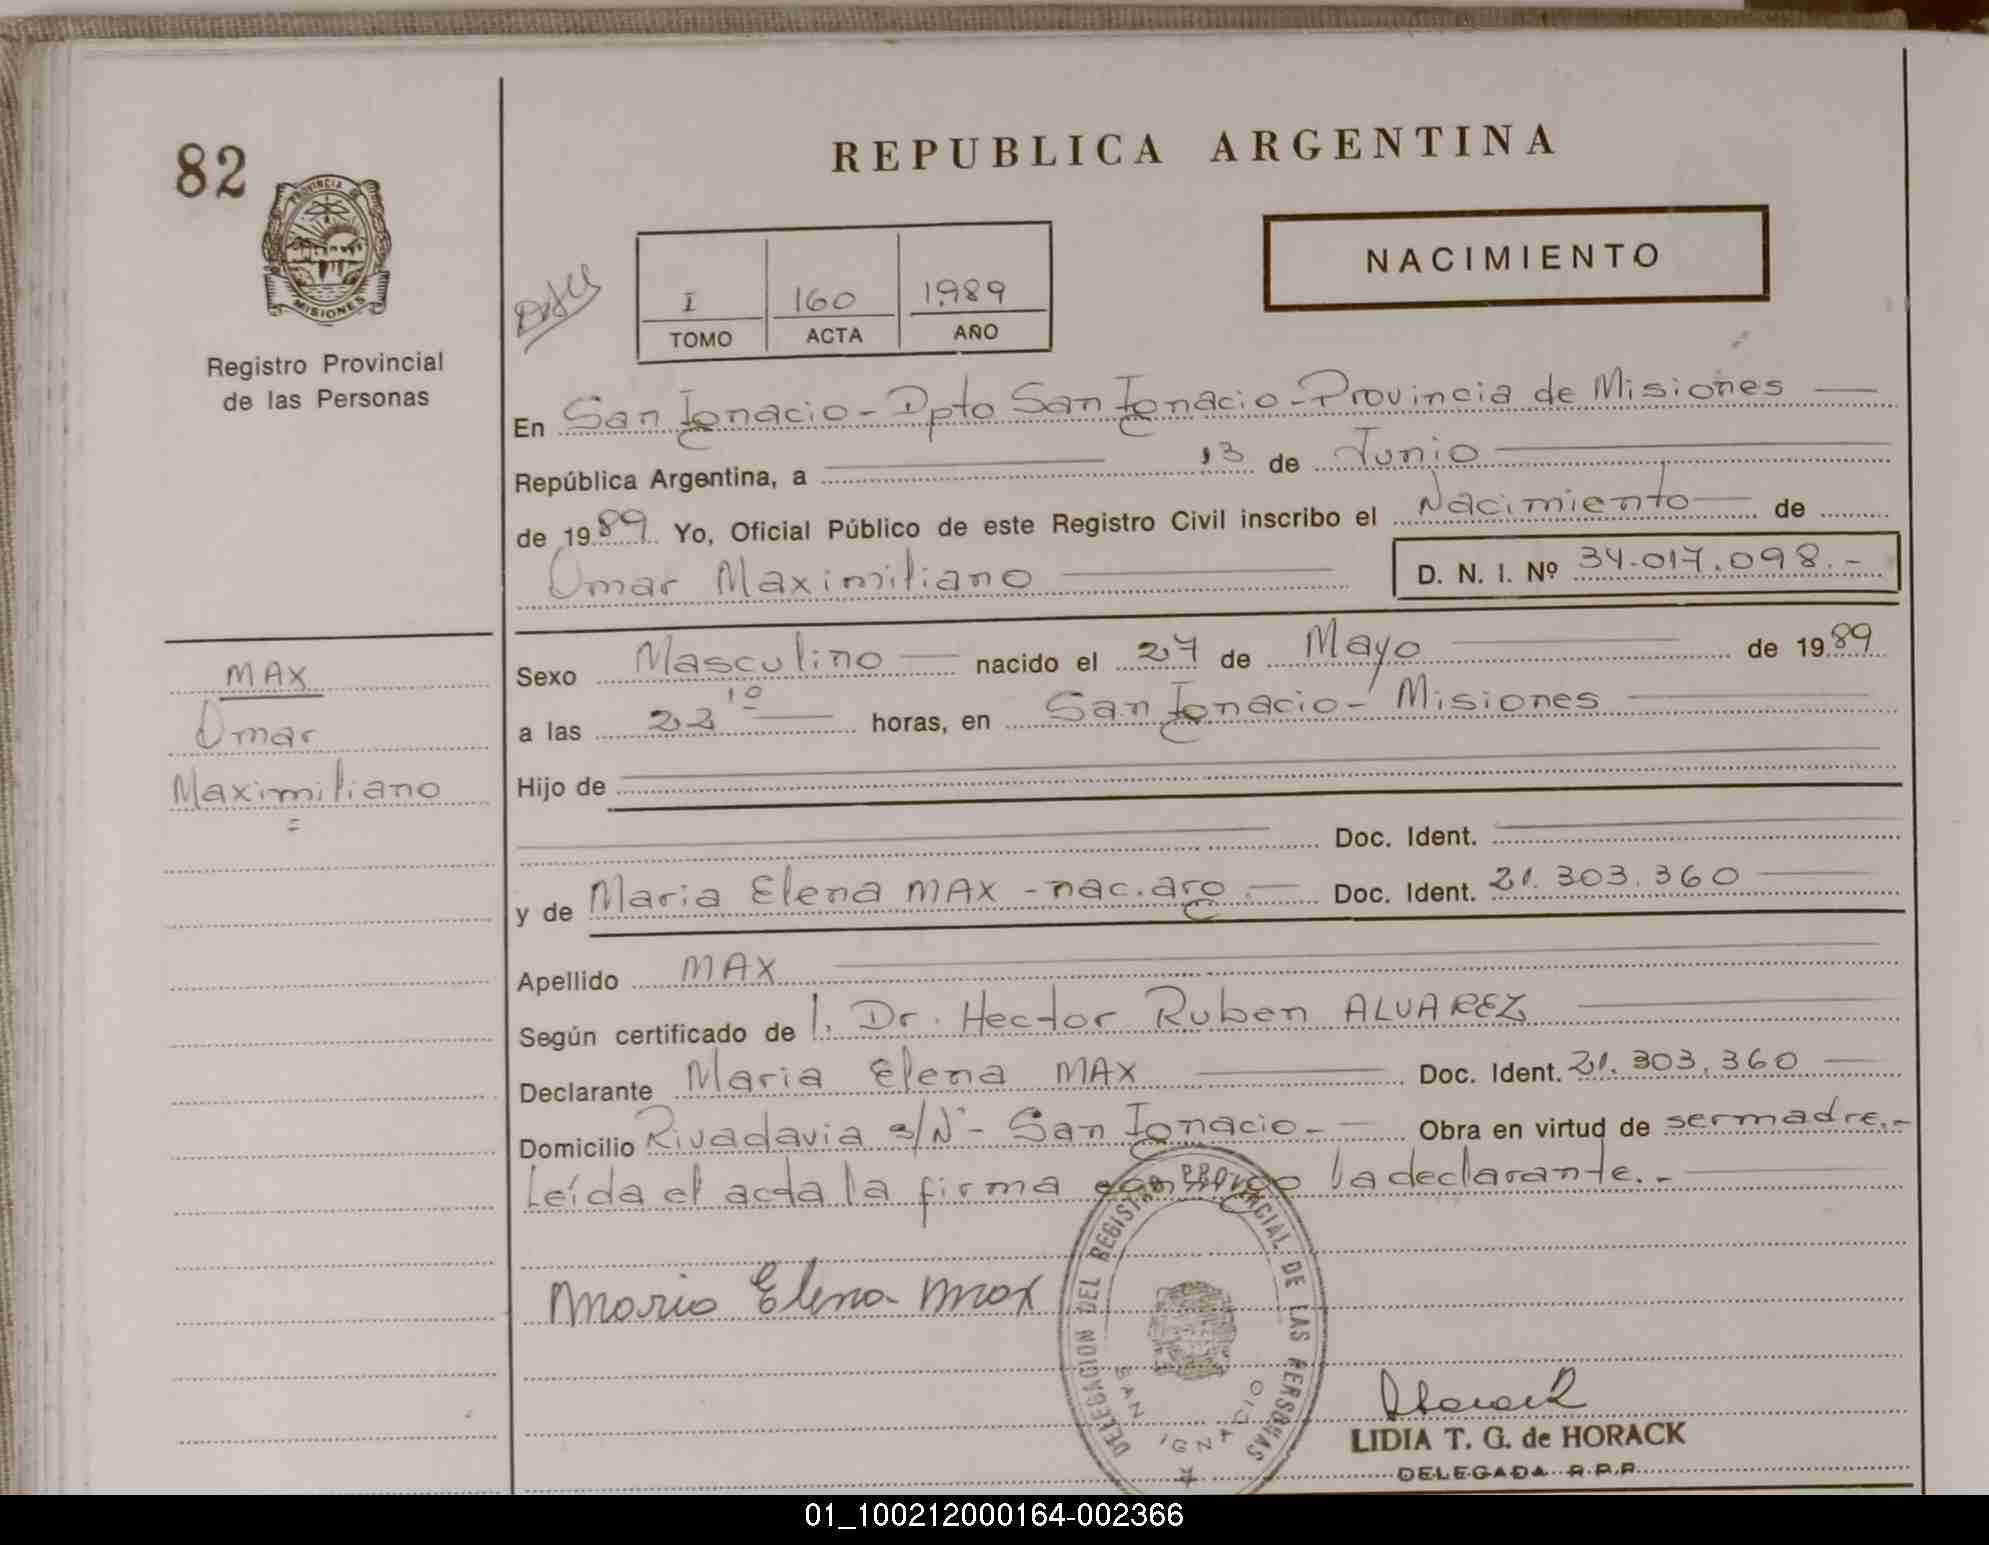 82
REPUBLICA ARGENTINA
PROVINCIA DE
MISIONES
Registro Provincial
de las Personas
I 160 1989
TOMO ACTA AÑO
NACIMIENTO
En San Ignacio - Dpto San Ignacio - Provincia de Misiones
República Argentina, a 13 de Junio
de 1989 Yo, Oficial Público de este Registro Civil inscribo el Nacimiento de
Omar Maximiliano D. N. I. Nº 34.017.098.-
MAX
Omar
Maximiliano
=
Sexo Masculino nacido el 27 de Mayo de 1989
a las horas, en San Ignacio - Misiones
Hijo de
Doc. Ident.
y de Maria Elena MAX - nac. arg. Doc. Ident. 21.303.360
Apellido MAX
Según certificado de l. Dr. Hector Ruben ALVAREZ
Declarante Maria Elena MAX Doc. Ident. 21.303.360
Domicilio Rivadavia s/Nº - San Ignacio - Obra en virtud de ser madre.-
Leída el acta la firma conmigo la declarante.-
Maria Elena Max
DELEGACION DEL REGISTRO PROVINCIAL DE LAS PERSONAS
SAN IGNACIO
Horack
LIDIA T. G. de HORACK
DELEGADA R.P.P.
01_100212000164-002366